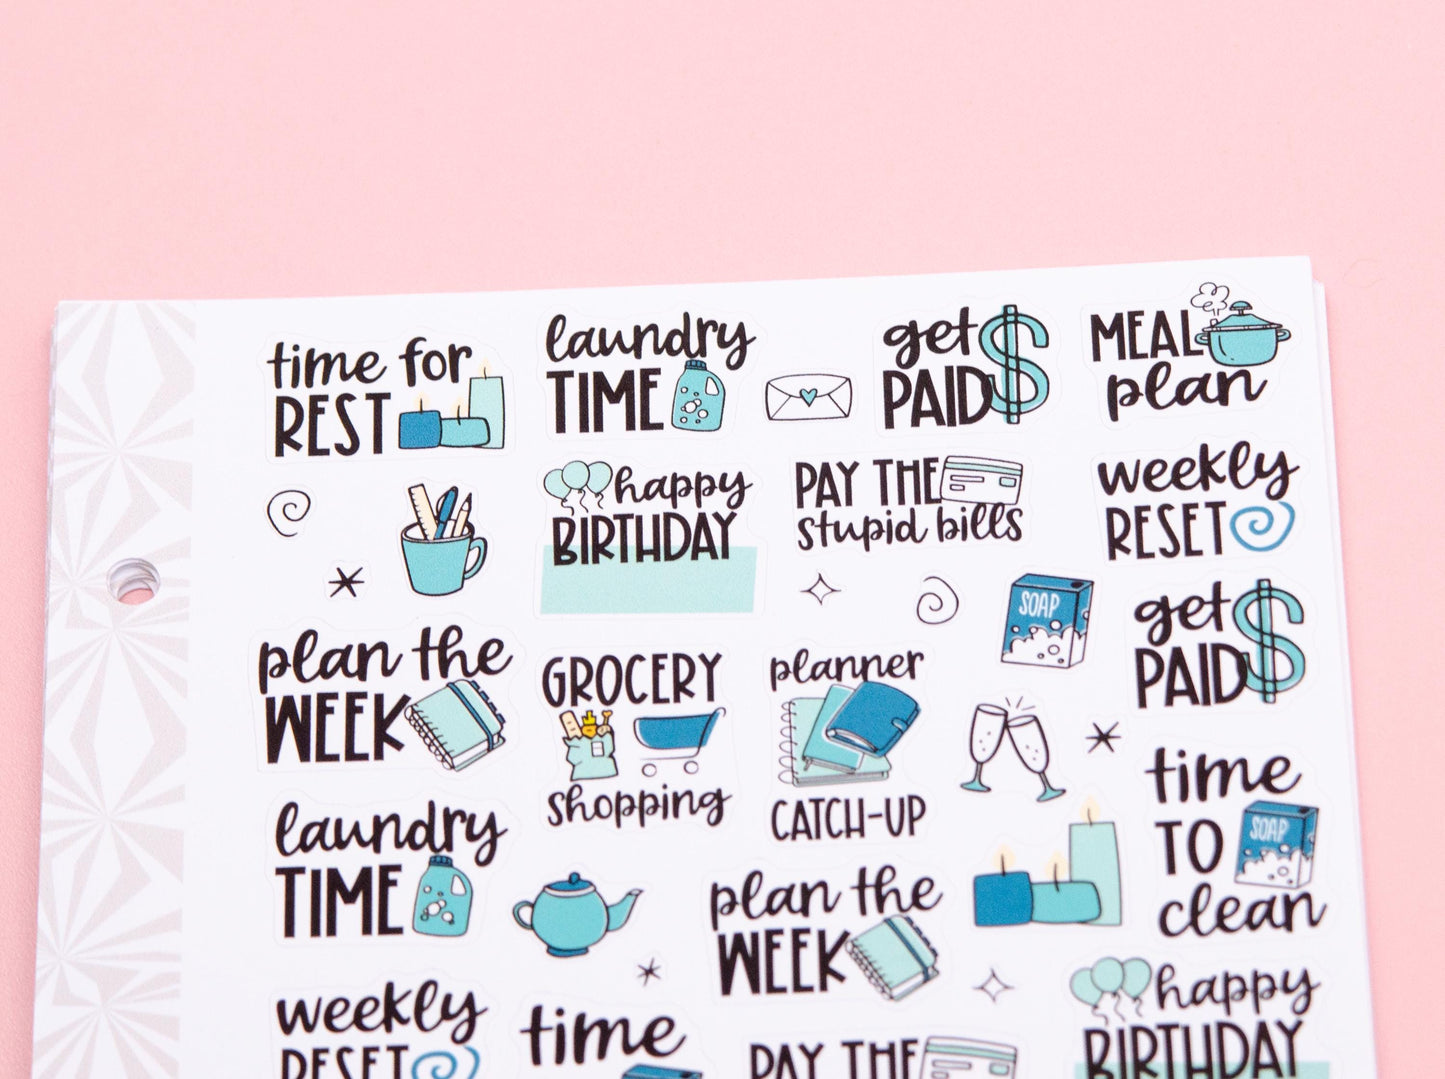 time for
REST
laundry
TIME
get
PAID
MEAL
plan
happy
BIRTHDAY
PAY THE
stupid bills
weekly
RESET
SOAP
get
PAID
plan the
WEEK
GROCERY
shopping
planner
CATCH-UP
time
TO
SOAP
clean
laundry
TIME
plan the
WEEK
weekly
RESET
time
PAY THE
happy
BIRTHDAY